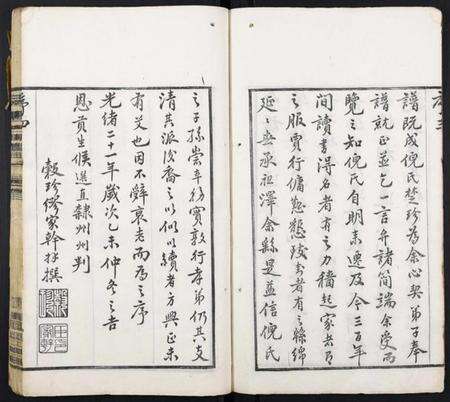 譜既成倪氏楚珍為余心契弟子奉
譜就正並乞一言弁諸簡端余受而
覽之知倪氏自明末遷及今三百年
間讀書得名者有之力穡起家者有
之服賈行傭勤慤者有之緜緜
延延世承祖澤余繇是益信倪氏
之子孫崇本務實敦行孝弟仍其支
清其派後裔之以似以續者方興正未
有艾也因不辭衰老而為之序
光緒二十一年歲次乙未仲冬之吉
恩貢生候選直隸州州判
穀珍繆家幹拜撰